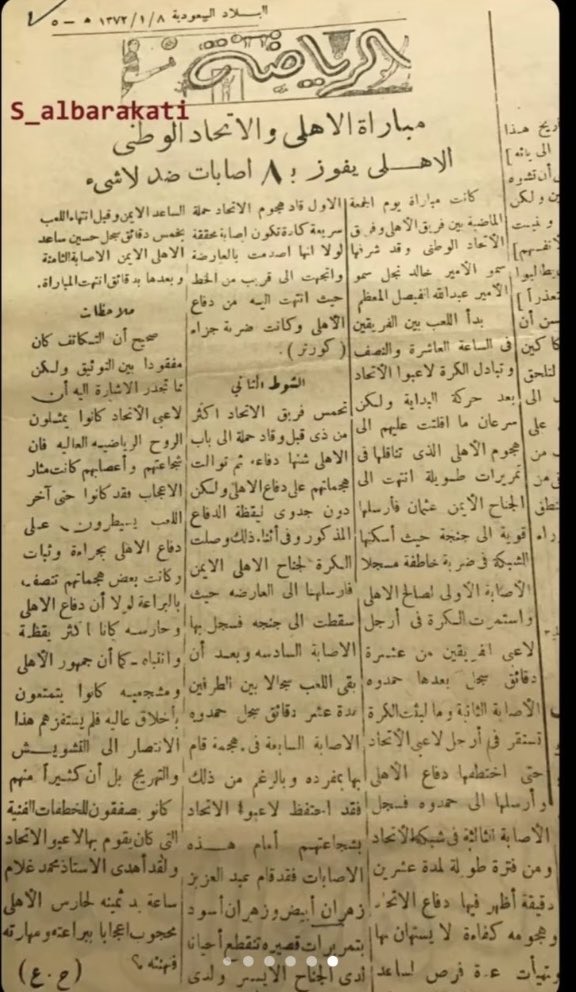 البـلاد السعودية ١٣٧٣/١/٨ ٥ — ٥
الرياضة
S_albarakati
مباراة الاهلى والاتحاد الوطنى
الاهـــلى يفوز بـ ٨ اصابات ضد لاشىء
كانت مباراة يوم الجمعة
الماضية بين فريق الأهلى وفريق
الاتحاد الوطنى وقد شرفها
سمو الأمير خالد نجل سمو
الأمير عبدالله الفيصل المعظم
بدأ اللعب بين الفريقين
فى الساعة العاشرة والنصف
وتبادل الكرة لاعبوا الاتحاد
بعد حركة البداية ولكن
سرعان ما افلتت عليهم الى
هجوم الأهلى الذى تناقلها فى
تمريرات طويلة انتهت الى
الجناح الأيمن عثمان فأرسلها
قوية الى جنجة حيث أسكنها
الشبكة فى ضربة خاطفة مسجلا
الأصابة الأولى لصالح الأهلى
واستمرت الكرة فى أرجل
لاعبى الفريقين من عشرة
دقائق سجل بعدها حمدوه
الأصابة الثانية وما لبثت الكرة
تستقر فى أرجل لاعبى الأتحاد
حتى اختطفها دفاع الأهلى
وأرسلها الى حمدوه فسجل
الأصابة الثالثة فى شبكة الأتحاد
ومن فترة طويلة لمدة عشرين
دقيقة أظهر فيها دفاع الاتحاد
وهجومه كفاءة لا يستهان بها
وتهيأت عدة فرص لساعد
الاول قاد هجوم الاتحاد حملة
سريعة كادة تكون اصابة محققة
لولا انها اصدمت بالعارضة
واتجهت الى قريب من الخط
حيث انتهت اليه من دفاع
الأهلى وكانت ضربة جزاء
( كورنر ) .
الشوط الثانى
تحمس فريق الاتحاد اكثر
من ذى قبل وقاد حملة الى باب
الاهلى شنها دفاعه ثم توالت
هجماتهم على دفاع الاهلى ولكن
دون جدوى ليقظة الدفاع
المذكور وفى أثناء ذلك وصلت
الكرة لجناح الاهلى الايمن
فارسلها الى العارضه حيث
سقطت الى جنجه فسجل بها
الاصابة السادسه وبعد أن
بقى اللعب سجالا بين الطرفين
مدة عشر دقائق سجل حمدوه
الاصابة السابعة فى هجمة قام
بها بمفرده وبالرغم من ذلك
فقد احتفظ لاعبوا الاتحاد
بشجاعتهم أمام هـــذه
الاصابات فقد قام عبد العزيز
زهران أبيض وزهران أسود
بتمريرات قصيره تتقطع أحيانا
لدى الجناح الايسر ولدى
الساعد الايمن وقبل انتهاء اللعب
بخمس دقائق سجل حسين ساعد
الاهلى الايمن الاصابة الثامنة
وبعدها بدقائق انتهت المباراة.
ملاحظات
صحيح أن التكاتف كان
مفقودا بين التوثيق ولكن
مما تجدر الاشارة اليه أن
لاعبى الأتحاد كانوا يمثلون
الروح الرياضيه العاليه فان
شجاعتهم وأعصابهم كانت مثار
الاعجاب فقد كانوا حتى آخر
اللعب يسيطرون على
دفاع الاهلى بجراءة وثبات
وكانت بعض هجماتهم تتصف
بالبراعة لولا أن دفاع الاهلى
وحارسه كانا أكثر يقظة
وانتباه ـ كما أن جمهور الاهلى
ومشجعيه كانوا يتمتعون
بأخلاق عاليه فلم يستفزهم هذا
الانتصار الى التشويش
والتهريج بل أن كثيراً منهم
كانو يصفقون للخطفات الفنية
التى كان يقوم بها لاعبو الاتحاد
ولقد أهدى الاستاذ محمد غلام
ساعة يد ثمينه لحارس الأهلى
محجوب اعجابا ببراعته ومهارته
فهنئه ؟
( ح . ع )